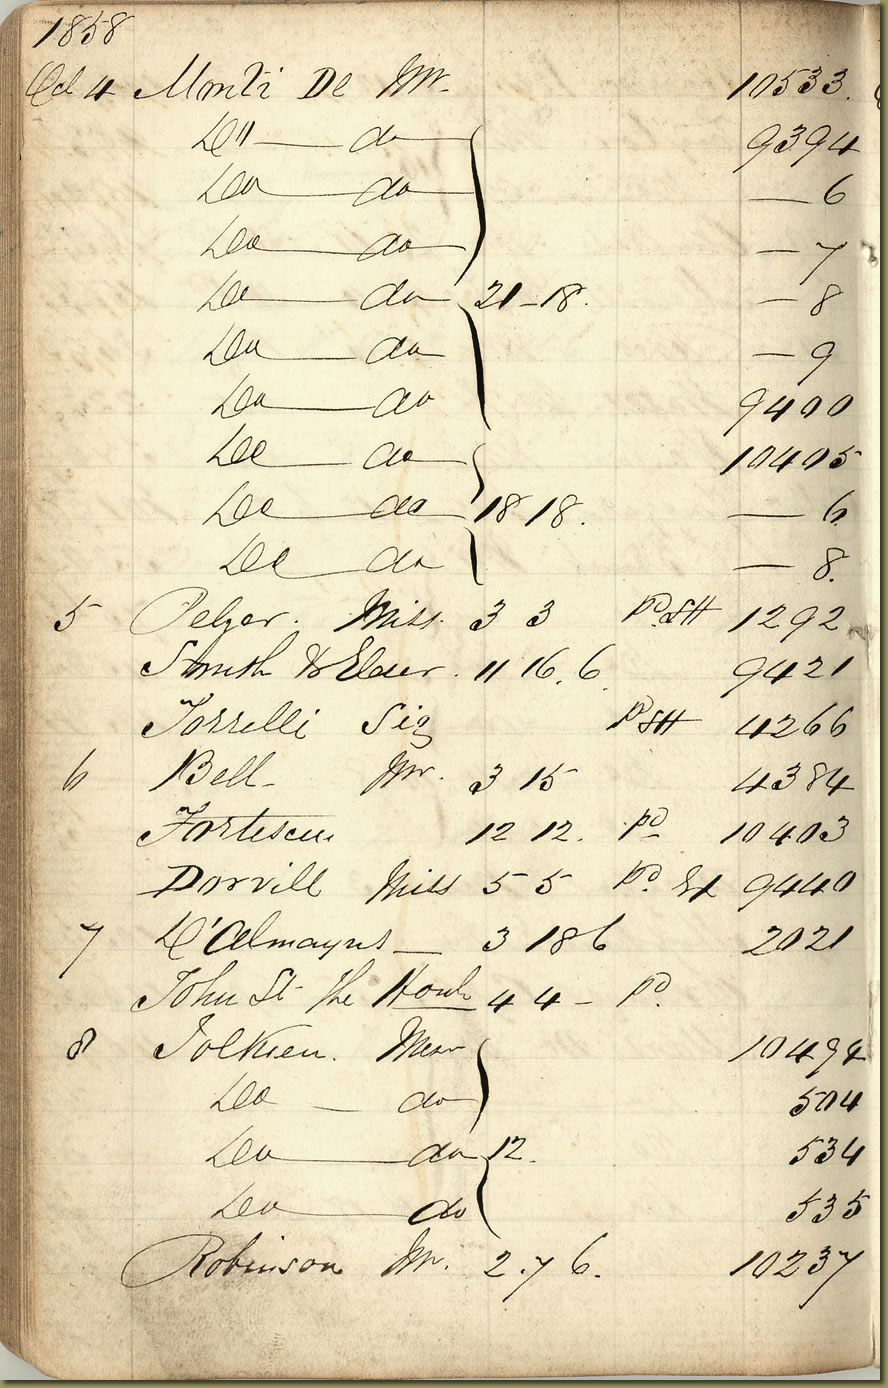 1858
Oct 4 Monti De Mr. 10533.
Do do 9394
Do do — 6
Do do — 7
Do do 21–18. — 8
Do do — 9
Do do 9400
Do do 10405
Do do 18 18. — 6
Do do — 8.
5 Pelzer. Miss. 3 3 Pd. SH 1292
Smith & Elder. 11 16. 6. 9421
Torrelli Sig Pd SH 4266
6 Bell Mr. 3 15 4384
Fortescue 12 12. pd 10403
Dorvill Miss 5 5 Pd. 9440
7 D'Almaynes — 3 18 6 2021
John St the Honble 4 4 – pd.
8 Tolkien. Messr 10494
Do — do 504
Do do 12. 534
Do do 535
Robinson Mr. 2. 7 6. 10237